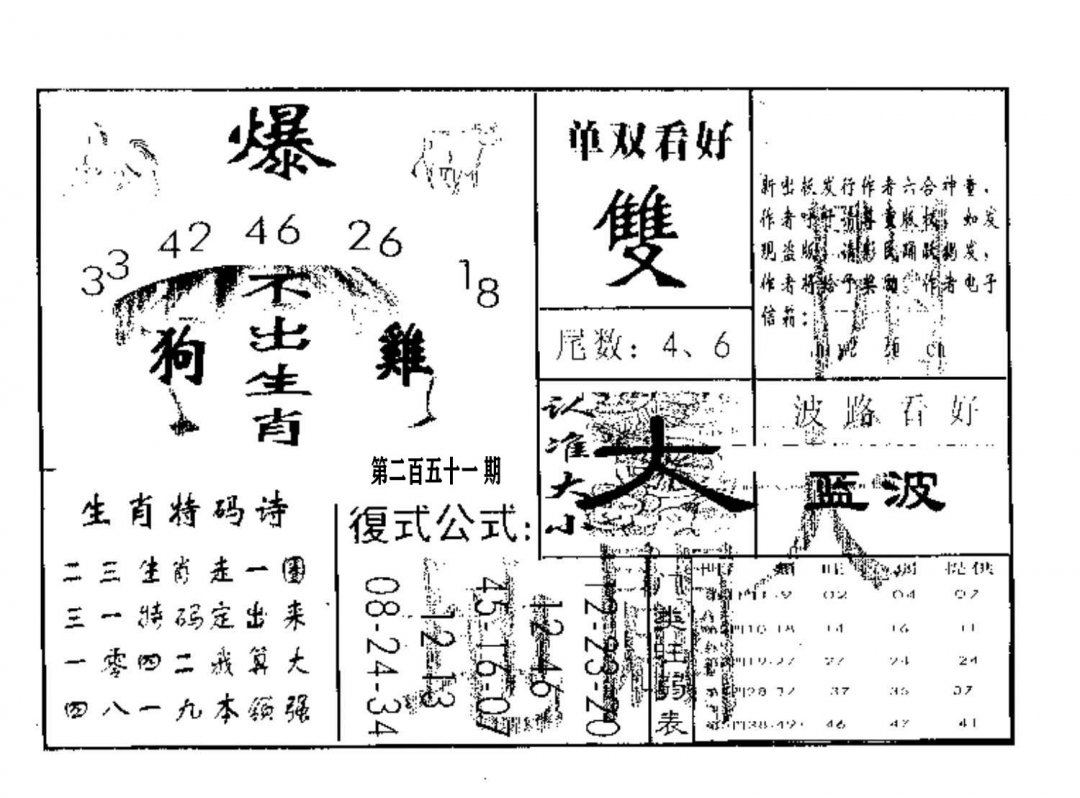 爆
33 42 46 26 18
不出生肖
狗
雞
第二百五十一期
生肖特码诗
二三生肖走一圈
三一特码定出来
一零四二我算大
四八一九本领强
单双看好
雙
尾数：4、6
认准大小
大
新出板发行作者六合神童，
作者呼吁请尊重版权，如发
现盗版，请彩民踊跃揭发，
作者将给予奖励，作者电子
信箱：
波路看好
蓝波
復式公式：
08-24-34
12 13
45-16-07
12-46
12-23-20
门类旺弱表
提供
02 04 07
14 16 11
27 24 24
37 35 37
46 47 41